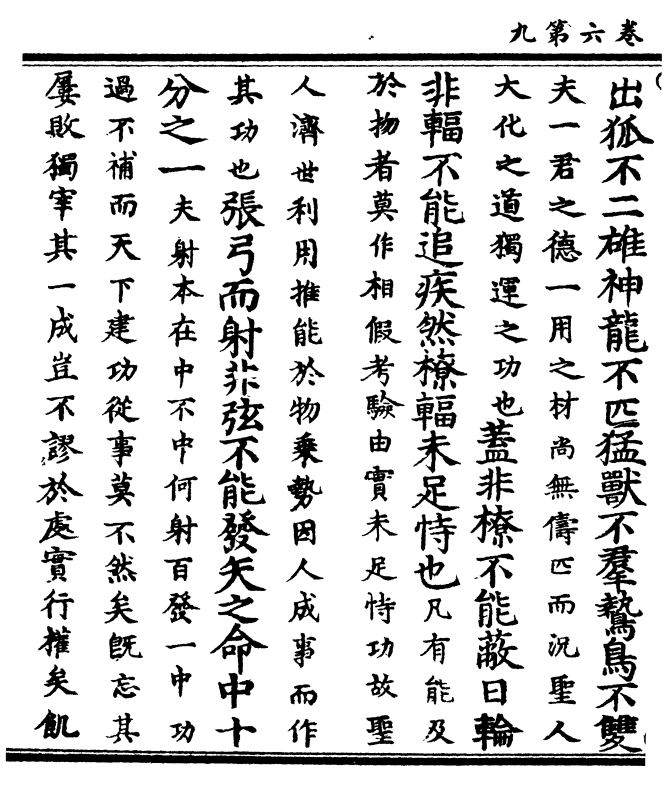 九第六卷
出狐不二雄神龍不匹猛獸不羣鷙鳥不雙
夫一君之德一用之材尚無儔匹而況聖人
大化之道獨運之功也蓋非橑不能蔽日輪
非輻不能追疾然橑輻未足恃也凡有能及
於物者莫作相假考驗由實未足恃功故聖
人濟世利用推能於物乘勢因人成事而作
其功也張弓而射非弦不能發矢之命中十
分之一夫射本在中不中何射百發一中功
過不補而天下建功從事莫不然矣既忘其
屢敗獨宰其一成豈不謬於處實行權矣飢